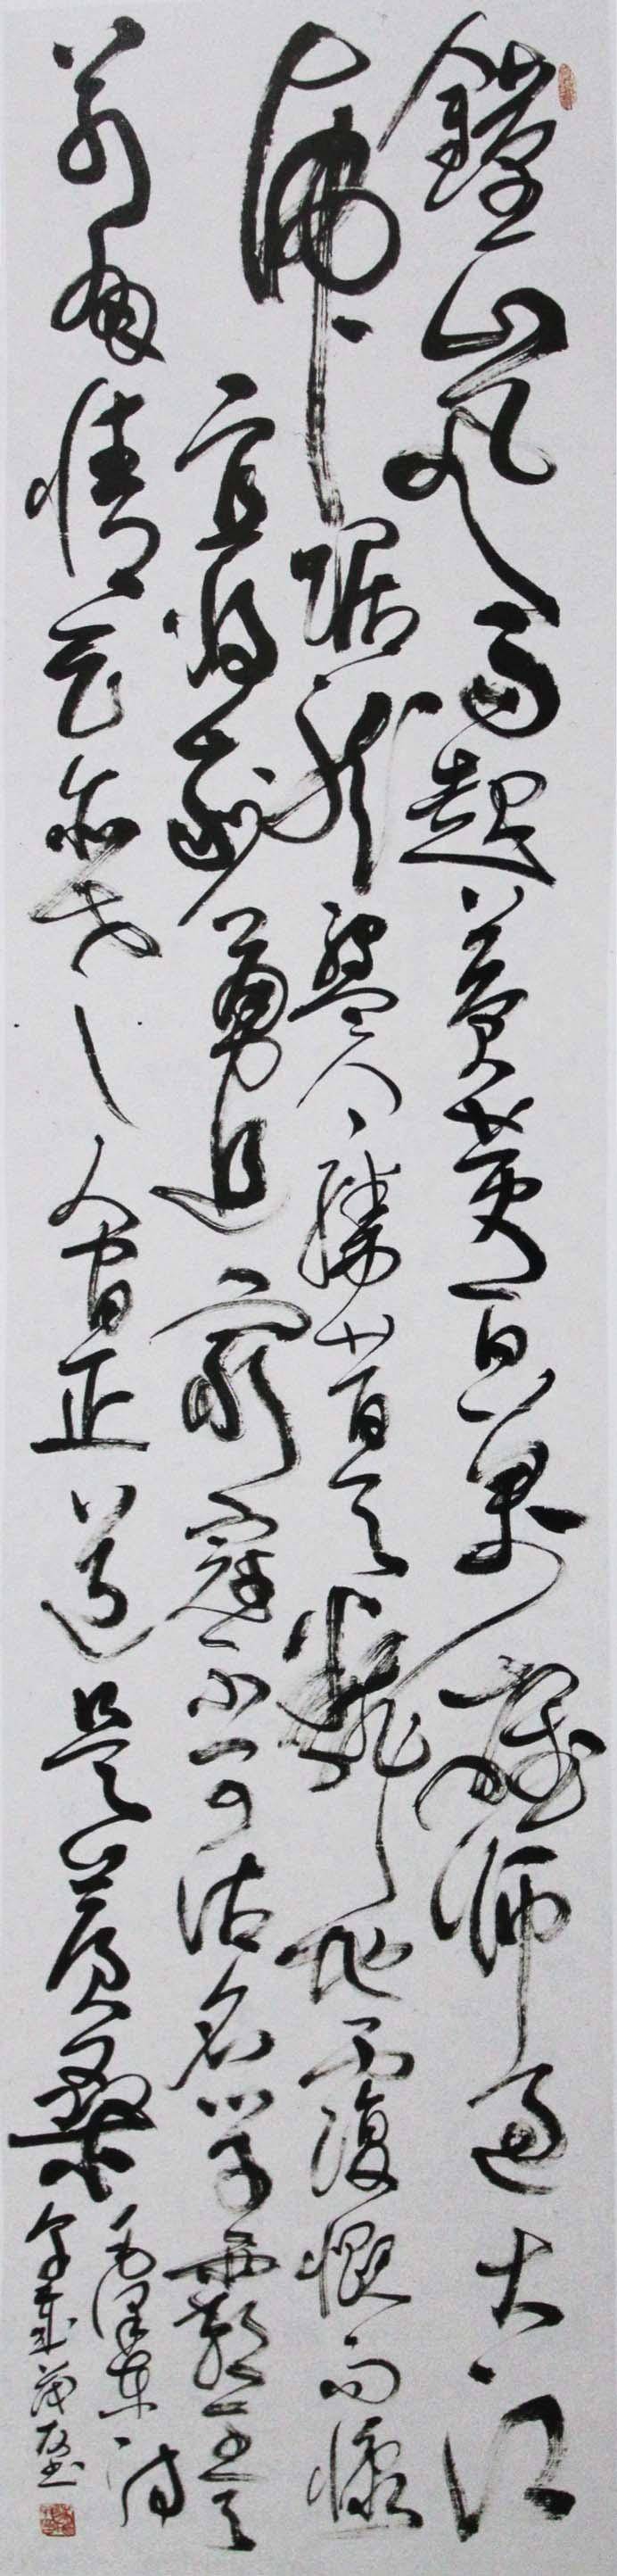 鐘山風雨起蒼黃百萬雄師過大江
虎踞龍盤今勝昔天翻地覆慨而慷
宜將剩勇追窮寇不可沽名學霸王天
若有情天亦老人間正道是滄桑
毛澤東詩